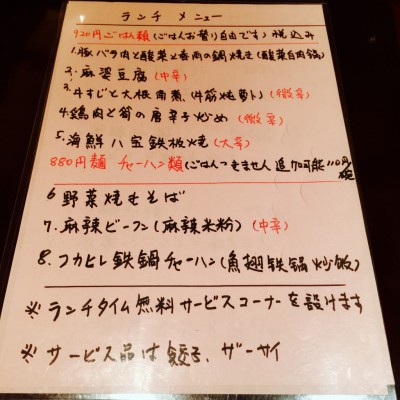 ランチ メニュー
920円ごはん類(ごはんお替り自由です)税込み
1.豚バラ肉と酸菜と春雨の鍋焼き(酸菜白肉鍋)
2.麻婆豆腐(中辛)
3.牛すじと大根角煮(牛筋炖萝卜)(微辛)
4.鶏肉と筍の唐辛子炒め(微辛)
5.海鮮八宝鉄板焼(大辛)
880円麺 チャーハン類(ごはんつきません追加可能110円/碗
6野菜焼きそば
7.麻辣ビーフン(麻辣米粉)(中辛)
8.フカヒレ鉄鍋チャーハン(魚翅铁锅炒飯)
※ランチタイム無料サービスコーナーを設けます
※サービス品は餃子、ザーサイ